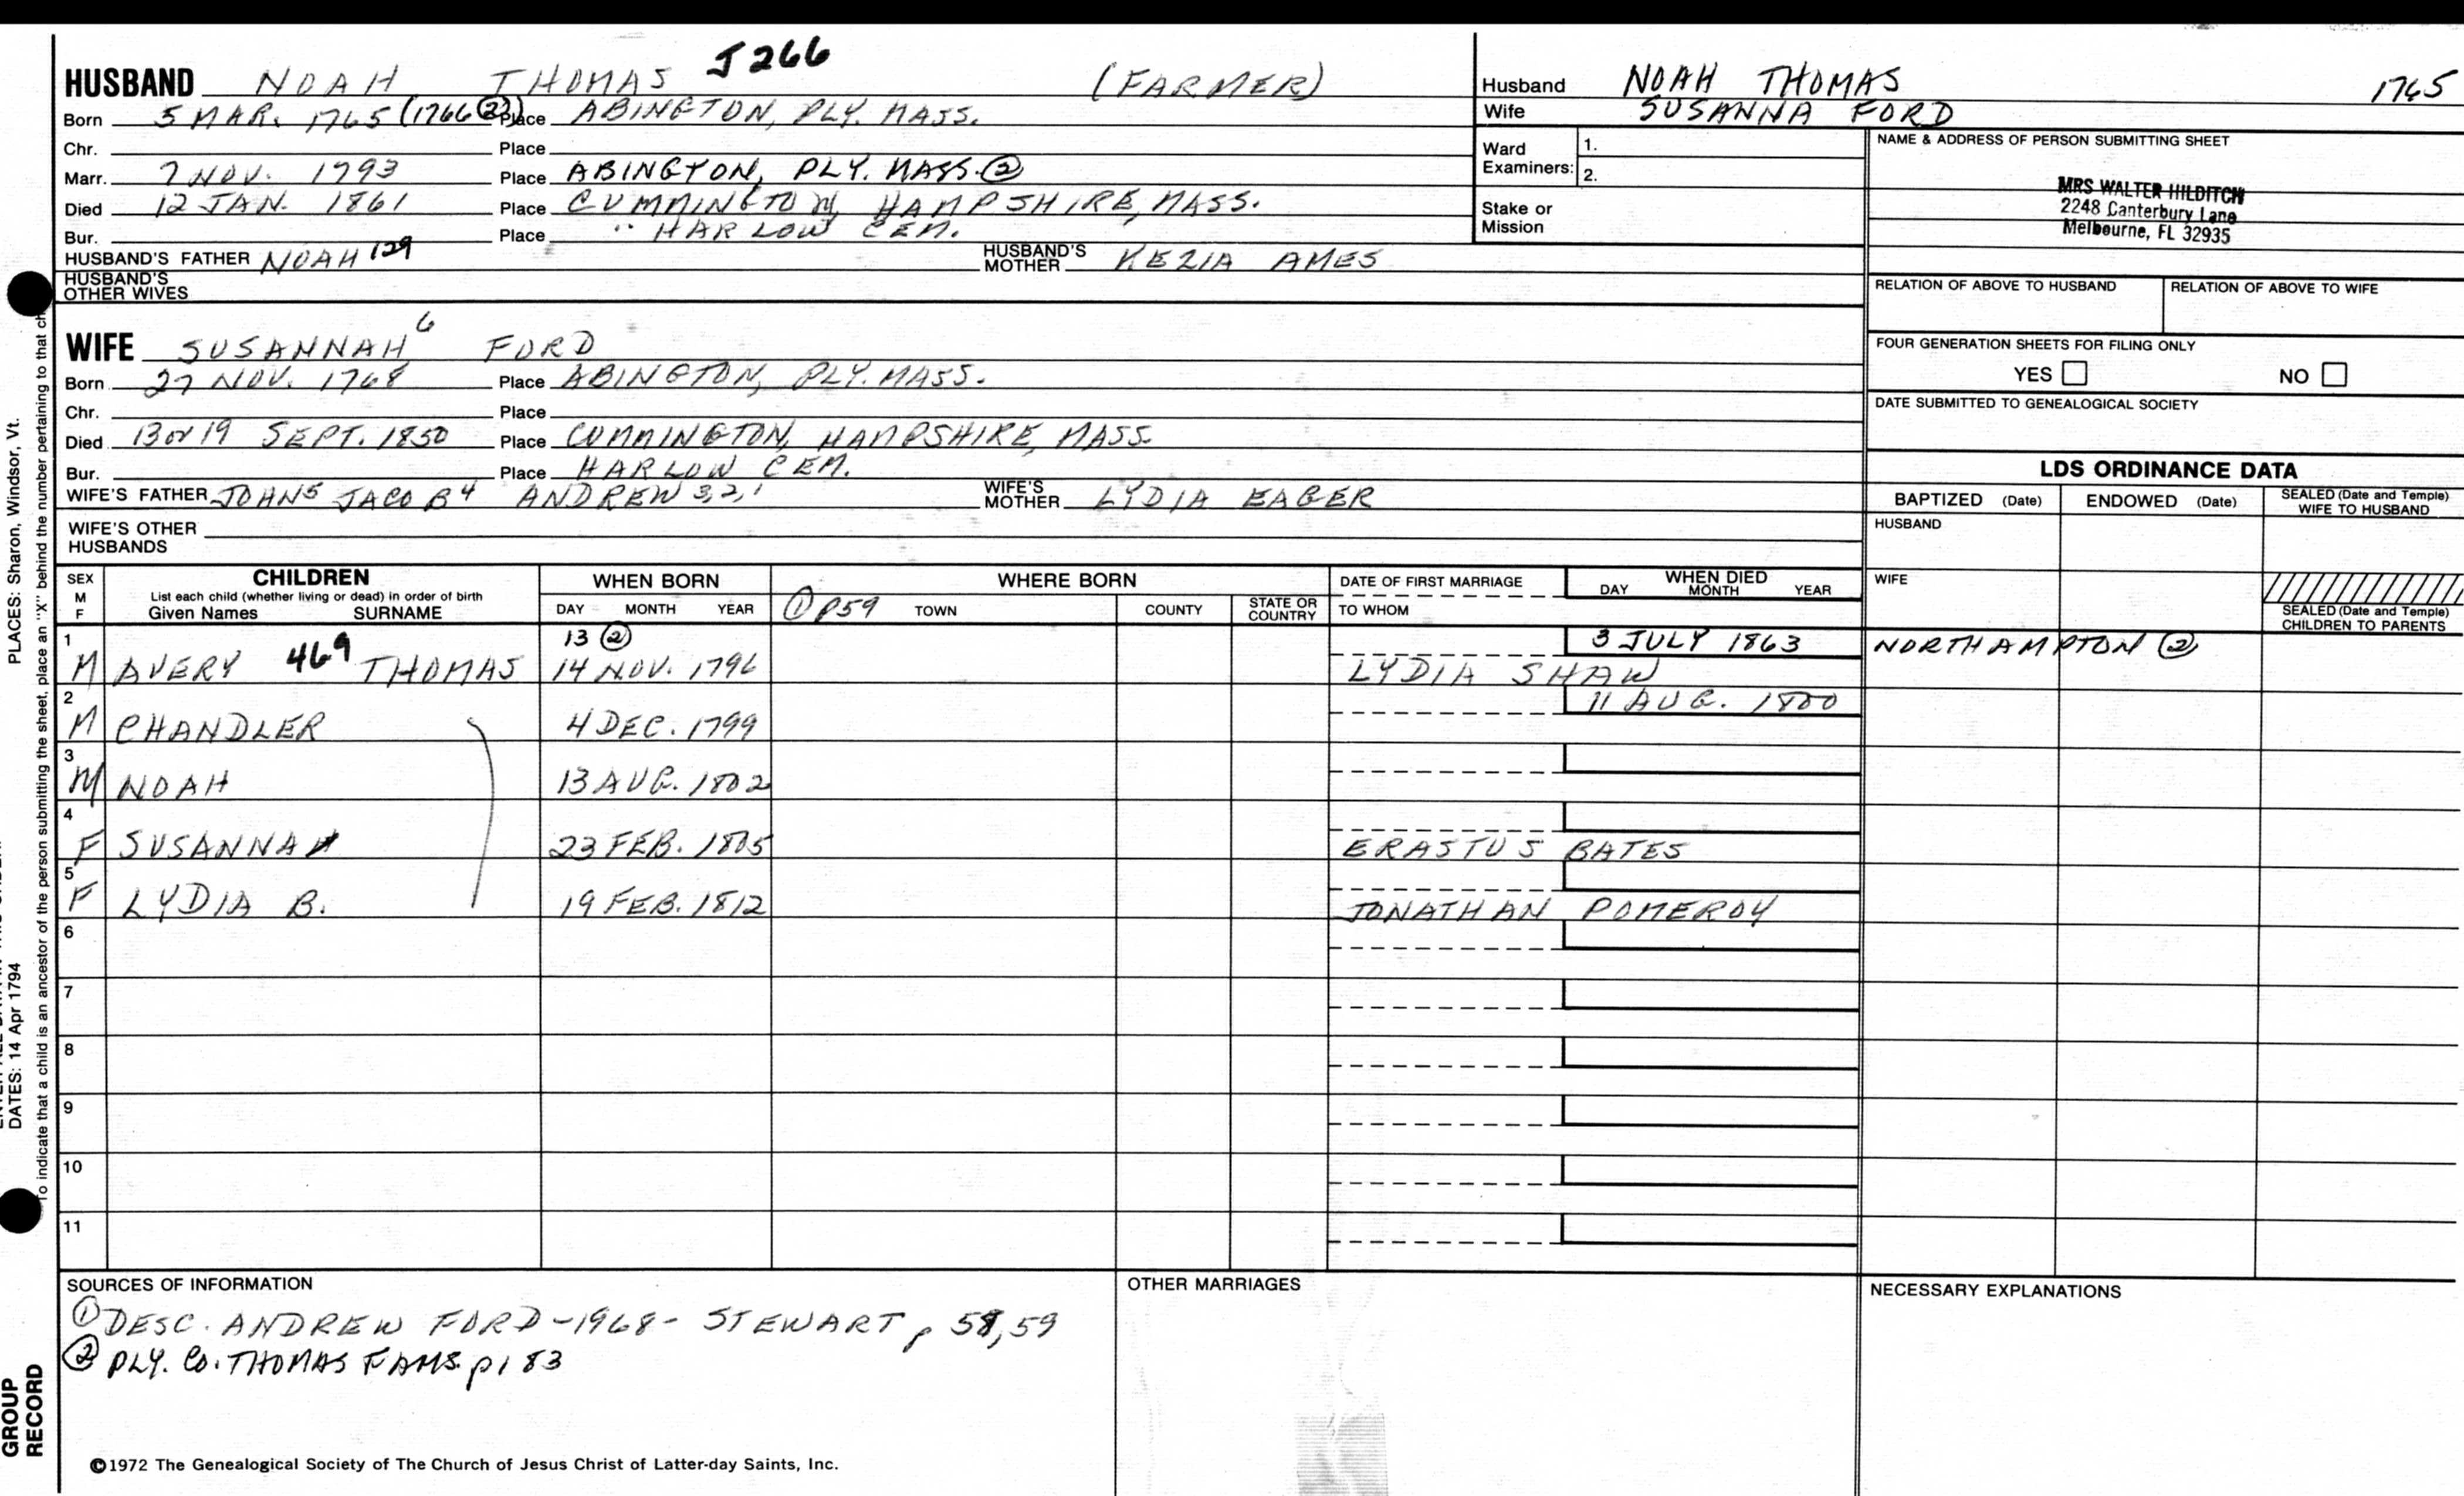 HUSBAND NOAH THOMAS J266 (FARMER)
Born 5 MAR. 1765 (1766 ②) Place ABINGTON, PLY. MASS.
Chr. Place
Marr. 7 NOV. 1793 Place ABINGTON, PLY. MASS. ②
Died 12 JAN. 1861 Place CUMMINGTON, HAMPSHIRE, MASS.
Bur. Place " HARLOW CEM.
HUSBAND'S FATHER NOAH 129 HUSBAND'S MOTHER KEZIA AMES
HUSBAND'S OTHER WIVES
WIFE SUSANNAH 6 FORD
Born 27 NOV. 1768 Place ABINGTON, PLY. MASS.
Chr. Place
Died 13 or 19 SEPT. 1850 Place CUMMINGTON, HAMPSHIRE, MASS.
Bur. Place HARLOW CEM.
WIFE'S FATHER JOHN5 JACOB4 ANDREW 3,2,1 WIFE'S MOTHER LYDIA EAGER
WIFE'S OTHER HUSBANDS
Husband NOAH THOMAS 1765
Wife SUSANNA FORD
Ward Examiners: 1.
2.
Stake or Mission
NAME & ADDRESS OF PERSON SUBMITTING SHEET
MRS WALTER HILDITCH
2248 Canterbury Lane
Melbourne, FL 32935
RELATION OF ABOVE TO HUSBAND RELATION OF ABOVE TO WIFE
FOUR GENERATION SHEETS FOR FILING ONLY
YES NO
DATE SUBMITTED TO GENEALOGICAL SOCIETY
LDS ORDINANCE DATA
BAPTIZED (Date) ENDOWED (Date) SEALED (Date and Temple) WIFE TO HUSBAND
HUSBAND
WIFE
SEALED (Date and Temple) CHILDREN TO PARENTS
SEX M F CHILDREN WHEN BORN WHERE BORN DATE OF FIRST MARRIAGE WHEN DIED
List each child (whether living or dead) in order of birth
DAY MONTH YEAR
Given Names SURNAME DAY MONTH YEAR ① p59 TOWN COUNTY STATE OR COUNTRY TO WHOM
1 13 ② 3 JULY 1863 NORTHAMPTON ②
M AVERY 469 THOMAS 14 NOV. 1796 LYDIA SHAW
2 11 AUG. 1800
M CHANDLER 4 DEC. 1799
3
M NOAH 13 AUG. 1802
4
F SUSANNAH 23 FEB. 1805 ERASTUS BATES
5
F LYDIA B. 19 FEB. 1812 JONATHAN POMEROY
6
7
8
9
10
11
SOURCES OF INFORMATION OTHER MARRIAGES NECESSARY EXPLANATIONS
① DESC. ANDREW FORD -1968- STEWART p 58,59
② PLY. CO. THOMAS FAMS. p183
©1972 The Genealogical Society of The Church of Jesus Christ of Latter-day Saints, Inc.
PLACES: Sharon, Windsor, Vt.
DATES: 14 Apr 1794
To indicate that a child is an ancestor of the person submitting the sheet, place an "X" behind the number pertaining to that
GROUP
RECORD